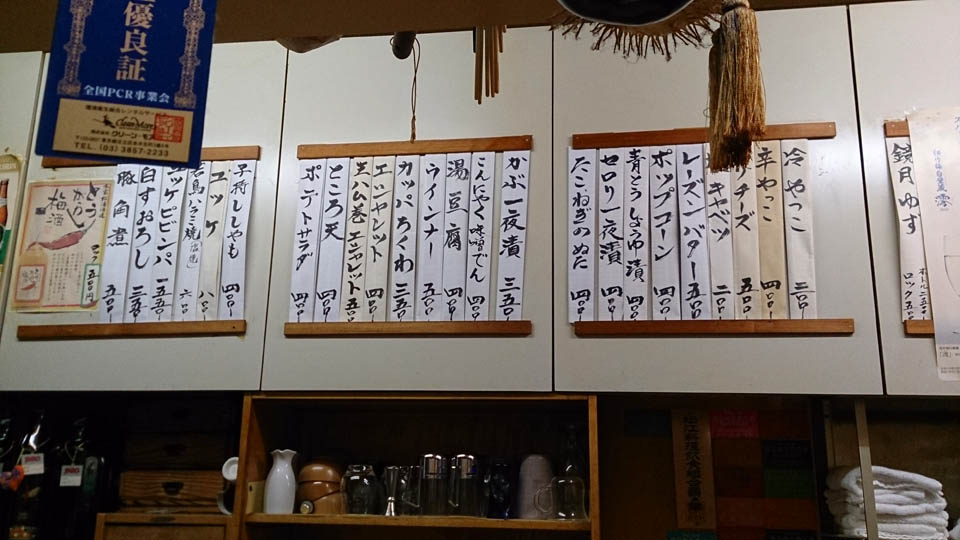 優良証
全国PCR事業会
環境衛生総合レンタルサービス
Clean More
株式会社クリーン・モア
TEL.(03)3857-2233
とうがらし梅酒
ロック 五〇〇円
子持ししゃも 四〇〇-
ユッケ 八〇〇-
ユッケビビンバ 一五五〇-
白すおろし 三五〇-
豚角煮 五〇〇-
かぶ一夜漬 三五〇-
こんにゃく味噌でん 四〇〇-
湯豆腐 四〇〇-
ウインナー 五〇〇-
カッパちくわ 三五〇-
エシャレット 四〇〇-
生ハム巻エシャレット 五五〇-
ところ天 四〇〇-
ポテトサラダ 四〇〇-
冷やっこ 三〇〇-
辛やっこ 四〇〇-
チーズ 五〇〇-
キャベツ 二〇〇-
レーズンバター 五五〇-
ポップコーン 四〇〇-
青とうしょうゆ漬 四〇〇-
セロリ一夜漬 四〇〇-
たこねぎのぬた 四〇〇-
鏡月ゆず
ロック 五〇〇-